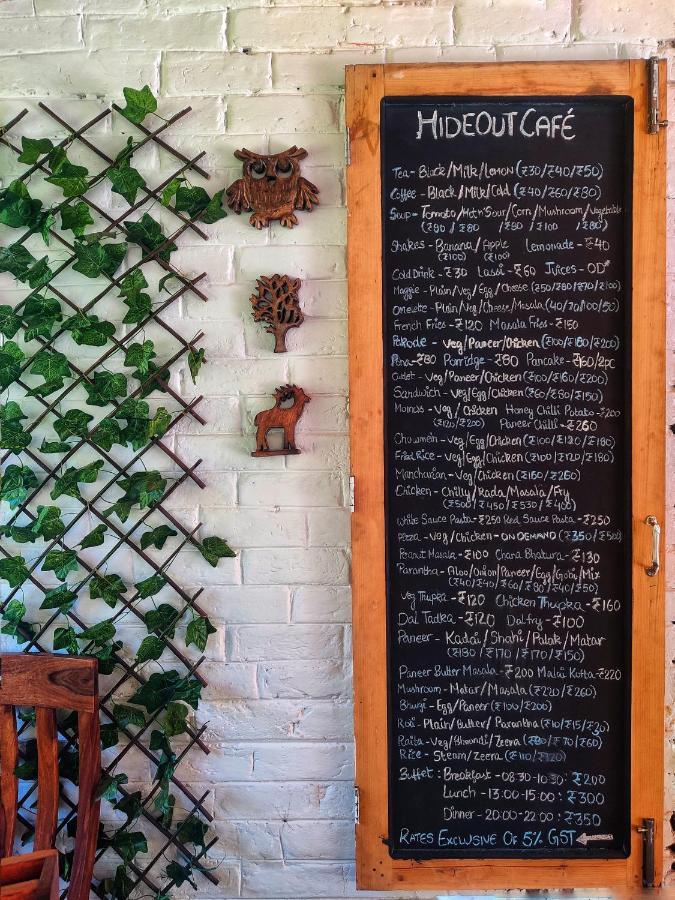 HIDEOUT CAFÉ
Tea - Black/Milk/Lemon (₹30/₹40/₹50)
Coffee - Black/Milk/Cold (₹40/₹60/₹80)
Soup - Tomato/Hot n Sour/Corn/Mushroom/Vegetable
(₹80 / ₹80 / ₹80 / ₹100 / ₹80)
Shakes - Banana/Apple Lemonade - ₹40
(₹100) (₹100)
Cold Drink - ₹30 Lassi - ₹60 Juices - OD*
Maggie - Plain/Veg/Egg/Cheese (₹50/₹80/₹70/₹100)
Omelette - Plain/Veg/Cheese/Masala (40/70/100/50)
French Fries - ₹120 Masala Fries - ₹150
Pakode - Veg/Paneer/Chicken (₹100/₹180/₹200)
₹80 Porridge - ₹80 Pancake - ₹160/2pc
Cutlet - Veg/Paneer/Chicken (₹100/₹160/₹200)
Sandwich - Veg/Egg/Chicken (₹60/₹80/₹150)
Momos - Veg / Chicken Honey Chilli Potato - ₹200
(₹120/₹200) Paneer Chilli - ₹260
Chowmein - Veg/Egg/Chicken (₹100/₹120/₹180)
Fried Rice - Veg/Egg/Chicken (₹100/₹120/₹180)
Manchurian - Veg/Chicken (₹160/₹260)
Chicken - Chilly/Kada/Masala/Fry
(₹500/₹450/₹530/₹400)
White Sauce Pasta - ₹250 Red Sauce Pasta - ₹250
Pizza - Veg/Chicken - ON DEMAND (₹350/₹500)
Peanut Masala - ₹100 Chana Bhatura - ₹130
Parantha - Aloo/Onion/Paneer/Egg/Gobi/Mix
(₹40/₹40/₹60/₹80/₹40/₹50)
Veg Thupka - ₹120 Chicken Thupka - ₹160
Dal Tadka - ₹120 Dal fry - ₹100
Paneer - Kadai/Shahi/Palak/Matar
(₹180/₹170/₹170/₹150)
Paneer Butter Masala - ₹200 Malai Kofta - ₹220
Mushroom - Matar/Masala (₹220/₹260)
Bhurji - Egg/Paneer (₹100/₹200)
Roti - Plain/Butter/Parantha (₹10/₹15/₹30)
Raita - Veg/Bhoondi/Zeera (₹80/₹70/₹60)
Rice - Steam/Zeera (₹110/₹120)
Buffet: Breakfast - 08:30-10:30: ₹200
Lunch - 13:00-15:00: ₹300
Dinner - 20:00-22:00: ₹350
RATES EXCLUSIVE OF 5% GST